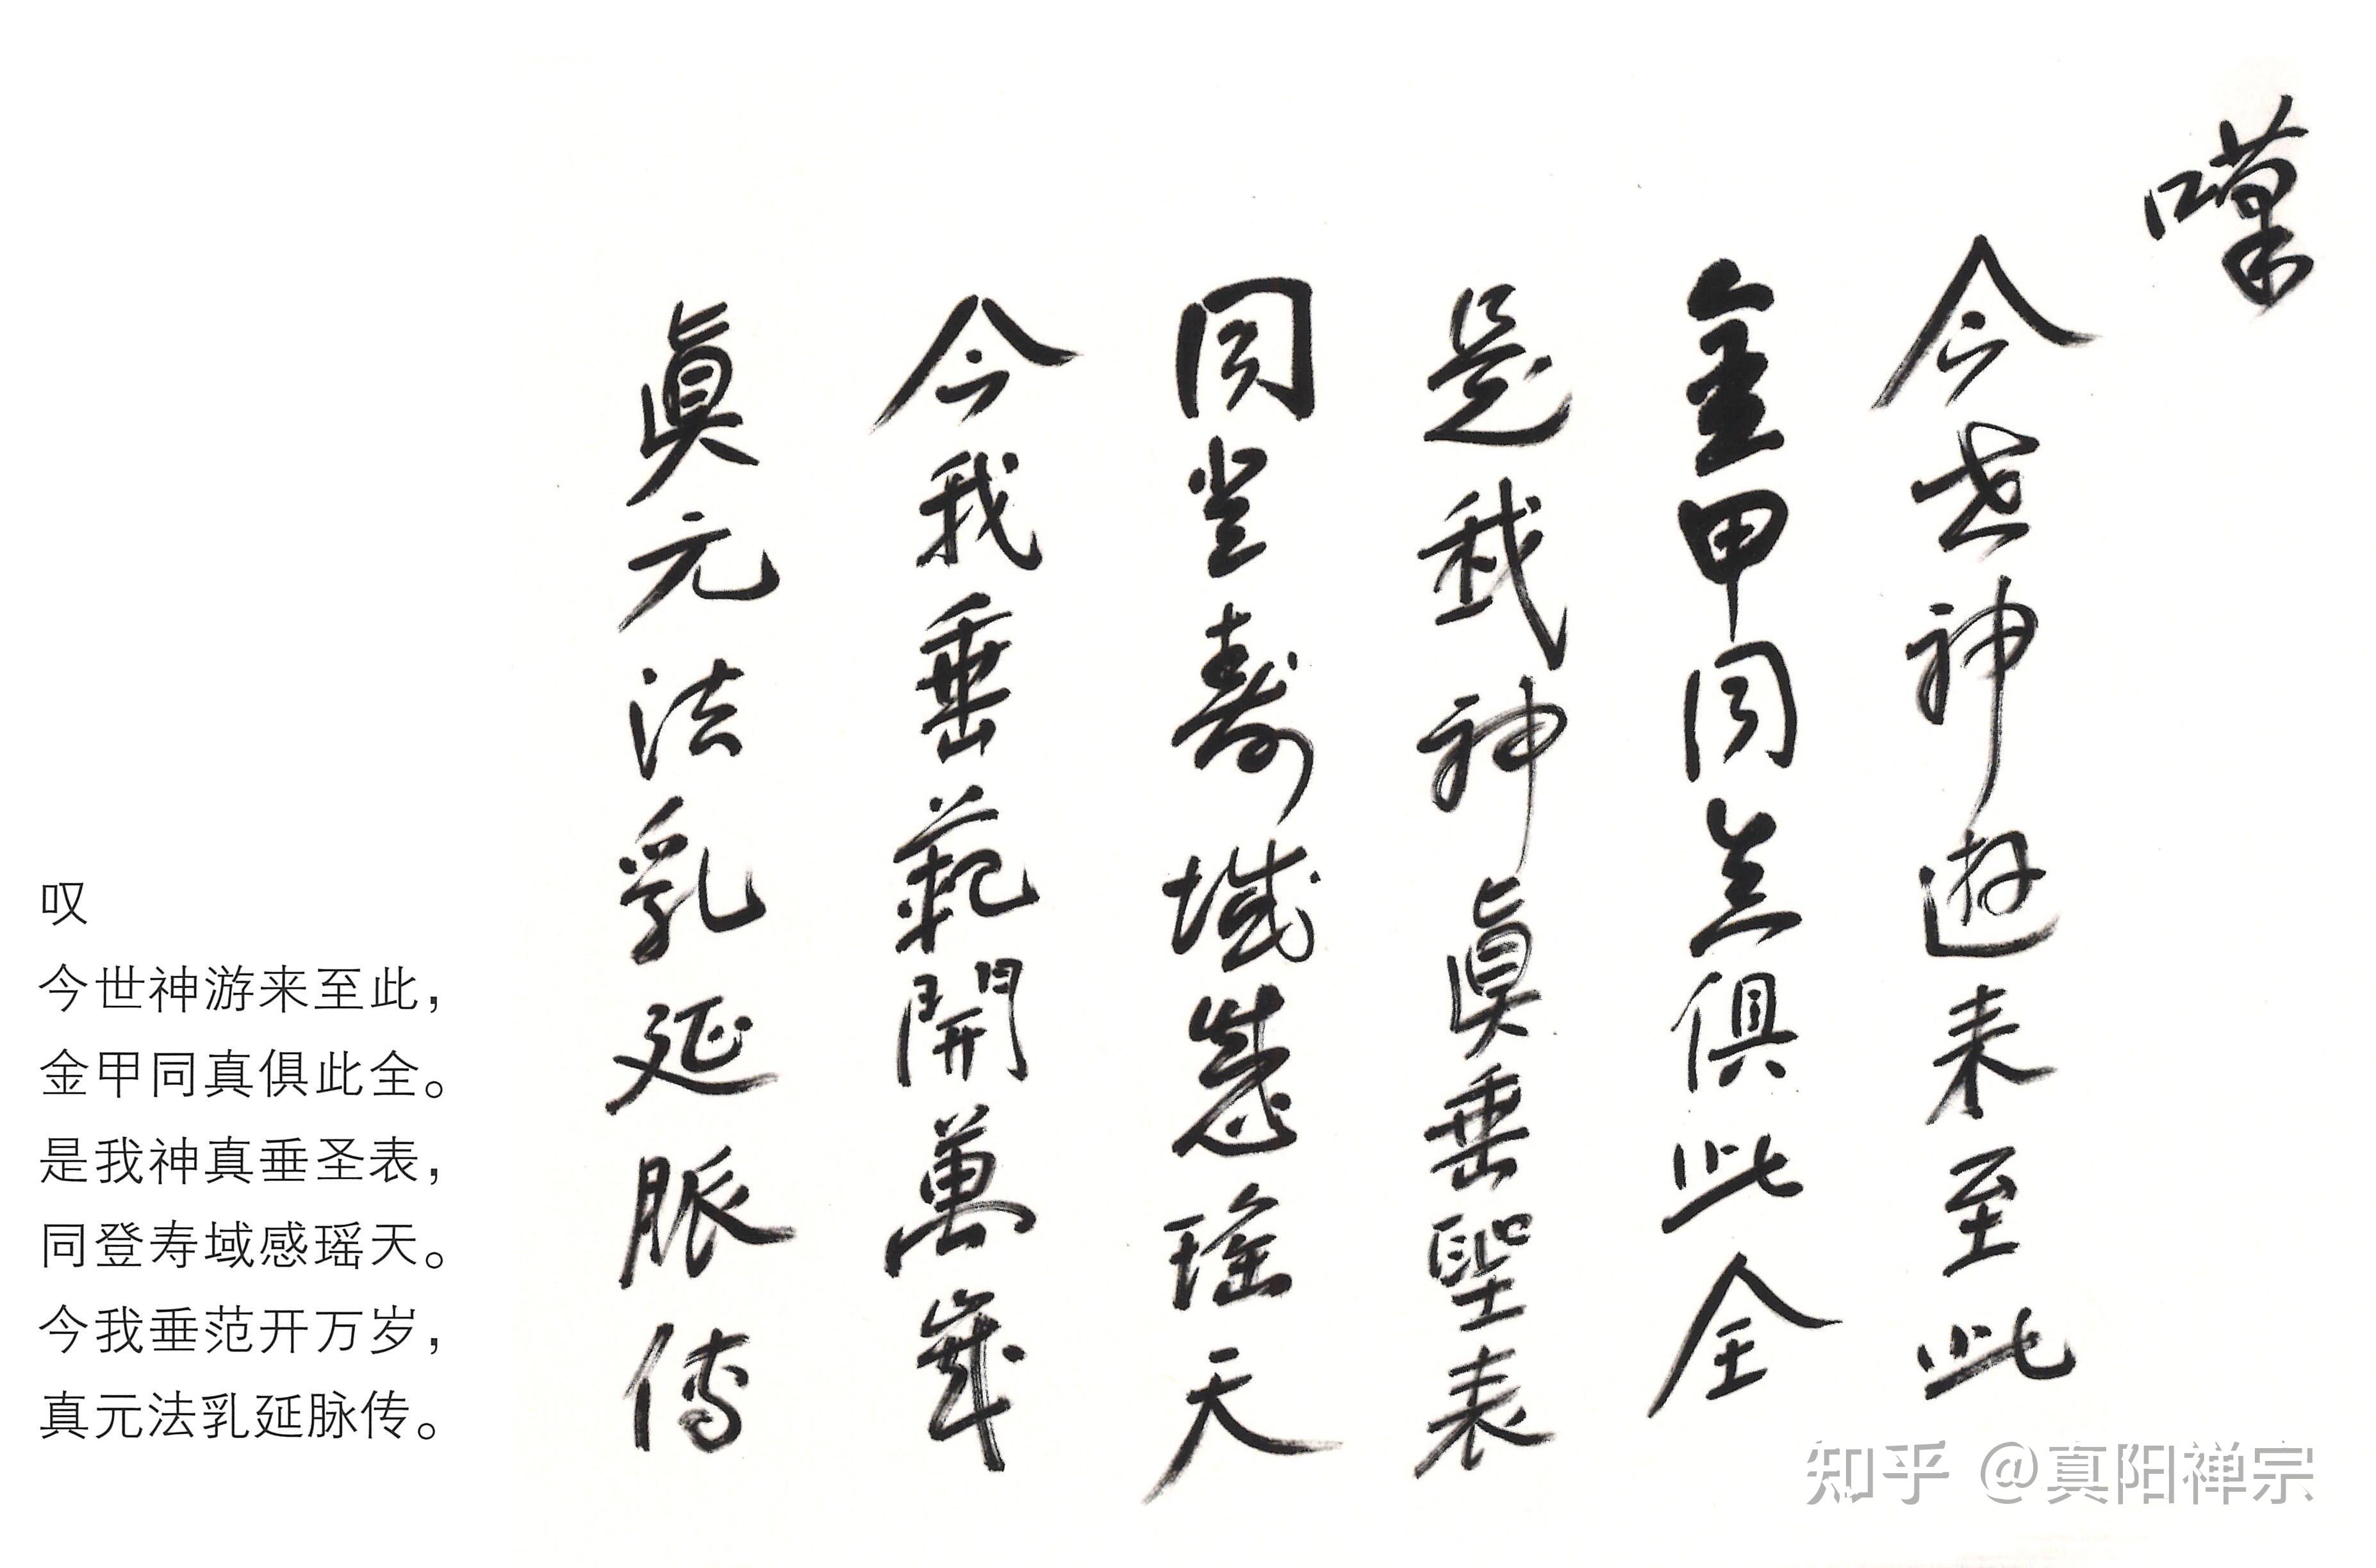 嘆
今世神遊来至此
金甲同真俱此全
是我神眞垂聖表
同登寿域感瑶天
今我垂範開萬歳
眞元法乳延脈傳
叹
今世神游来至此，
金甲同真俱此全。
是我神真垂圣表，
同登寿域感瑶天。
今我垂范开万岁，
真元法乳延脉传。
知乎 @真阳禅宗